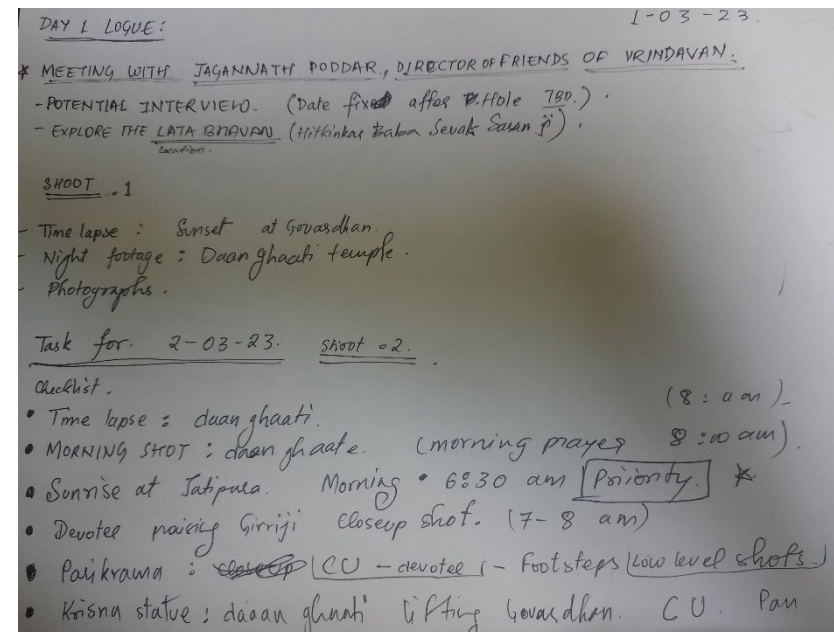 1-03-23.
DAY 1 LOGUE:
* MEETING WITH JAGANNATH PODDAR, DIRECTOR OF FRIENDS OF VRINDAVAN.
- POTENTIAL INTERVIEW. (Date fixed after Hole TBD.).
- EXPLORE THE LATA BHAVAN (Hitkinkar Baba Sevak Saran ji).
Location.
SHOOT .1
- Time lapse : Sunset at Govardhan.
- Night footage : Daan ghaati temple.
- Photographs.
Task for. 2-03-23. Shoot .2.
Checklist.
• Time lapse : daan ghaati. (8: am)
• MORNING SHOT : daan ghaate. (morning prayer 8:00 am).
• Sunrise at Jatipura. Morning • 6:30 am Priority. *
• Devotee Girriji closeup shot. (7-8 am)
• Parikrama : CU - devotee - Footsteps (Low level shots.)
• Krisna statue : daaan ghaati lifting Govardhan. CU. Pan